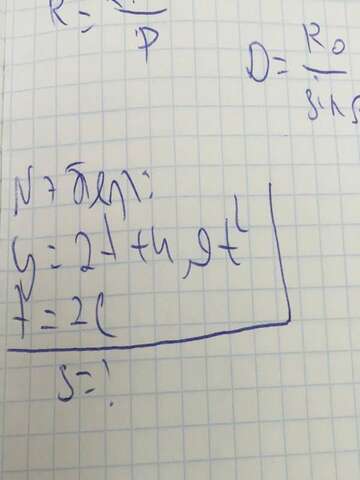 R = / P
D = R₀ / sin
N 7
y = 2t + 4,9t²
t = 2c
S = ?